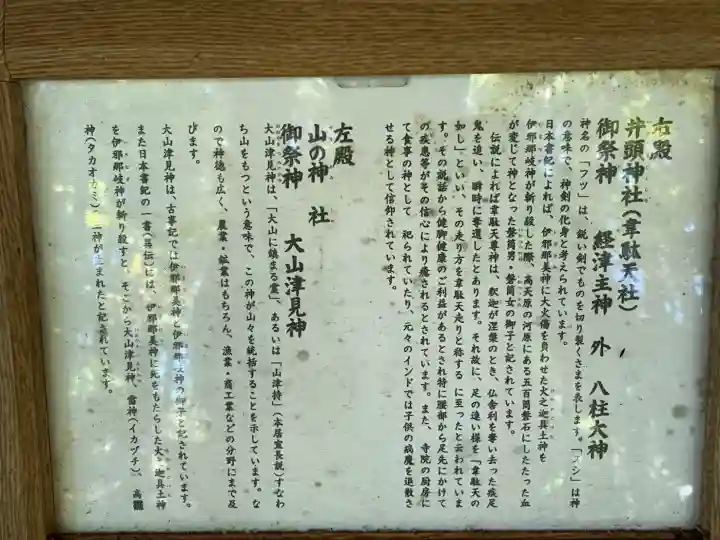 右殿
井頭神社(韋駄天社)
御祭神 経津主神 外 八柱大神
神名の「フツ」は、鋭い剣でものを切り裂くさまを表します。「ヌシ」は神
の意味で、神剣の化身と考えられています。
日本書記によれば、伊邪那美神に大火傷を負わせた火之迦具土神を
伊邪那岐神が斬り殺した際、高天原の河原にある五百箇磐石にしたたった血
が変じて神となった磐筒男・磐筒女の御子と記されています。
伝説によれば韋駄天尊神は、釈迦が涅槃のとき、仏舎利を奪い去った疾足
鬼を追い、瞬時に奪還したとあります。それ故に、足の速い様を「韋駄天の
如し」といい、その走り方を韋駄天走りと称する に至ったと云われていま
す。その説話から健脚健康のご利益があるとされ特に腰部から足先にかけて
の疾患等がその信心により癒されるとされています。また、寺院の厨房に
て食事の神として 祀られていたり、元々のインドでは子供の病魔を退散さ
せる神として信仰されています。
左殿
山の神 社
御祭神 大山津見神
大山津見神は、「大山に鎮まる霊」、あるいは「山津持」(本居宣長説)すなわ
ち山をもつという意味で、この神が山々を統括することを示しています。な
ので神徳も広く、農業・鉱業はもちろん、漁業・商工業などの分野にまで及
びます。
大山津見神は、古事記では伊邪那美神と伊邪那岐神の御子と記されています。
また日本書記の一書(異伝)には、伊邪那美神に死をもたらした火之迦具土神
を伊邪那岐神が斬り殺すと、そこから大山津見神、雷神(イカヅチ)、高龗
神(タカオカミ)の三神が生まれたと記されています。